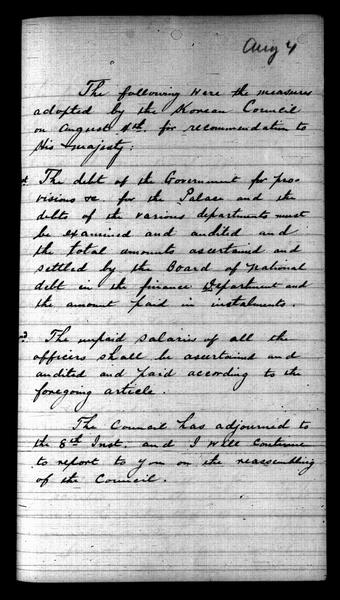 Aug 4
The following were the measures
adopted by the Korean Council
on August 4th. for recommendation to
His Majesty:
The debt of the Government for pro-
visions &c. for the Palace and the
debts of the various departments must
be examined and audited and
the total amounts ascertained and
settled by the Board of National
debt in the finance Department and
the amount paid in instalments.
The unpaid salaries of all the
officers shall be ascertained and
audited and paid according to the
foregoing article.
The Council has adjourned to
the 8th Inst. and I will continue
to report to you on the reassembling
of the Council.